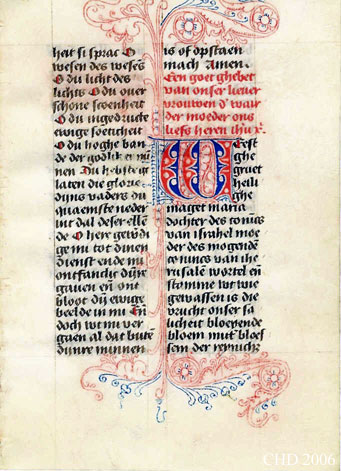 heit si sprac O
wesen des weses
O du licht des
lichts O du over
schone scoenheit
O du ingedructe
ewige soeticheit
O du hoghe ban
de der godlicker mi
nen Du hebste ge
laten die glorie
dijns vaders du
quaemste neder
uut dal deser elle
de O here gewerdi
ge mi tot dinen
dienst ende mi
ontfancht dijnre
gauen en ont
bloot dij ewige
beelde in mi En
doch wt mi ver
gaen al dat bute
dijnre minnen
is of opstaen
mach Amen
Een goet ghebet
van onser lieuer
vrouwen d' waer
der moeder ons
liefs heren ihu xr.
Weest
ghe
gruet
heili
ghe
maget maria
dochter des conincs
van israhel moe
der des mogende
conincs van ihe
rusalem wortel en
stamme wt wie
gewassen is die
vrucht onser sa
licheit bloeyende
bloem mitt bloes
sem der reynicheit
CHD 2006